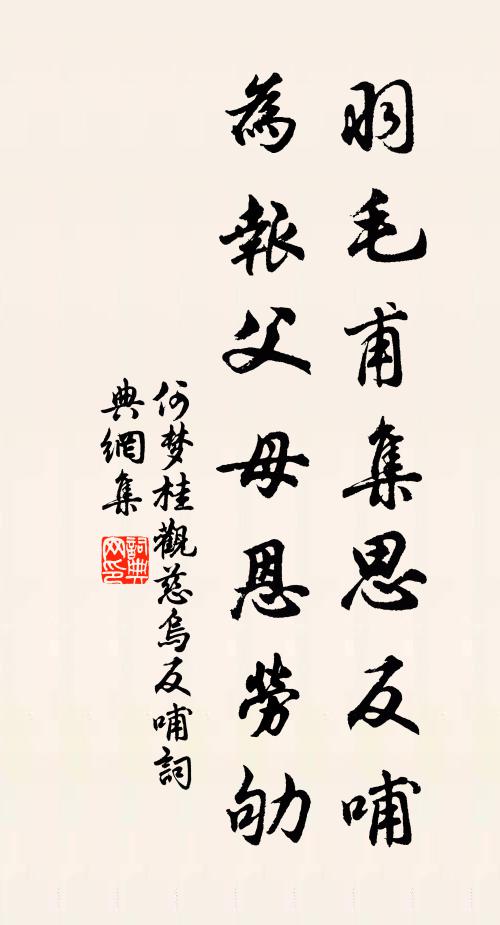 羽毛甫集思反哺
為報父母恩勞劬
何梦桂觀慈烏反哺詞
典網集
詞典網印